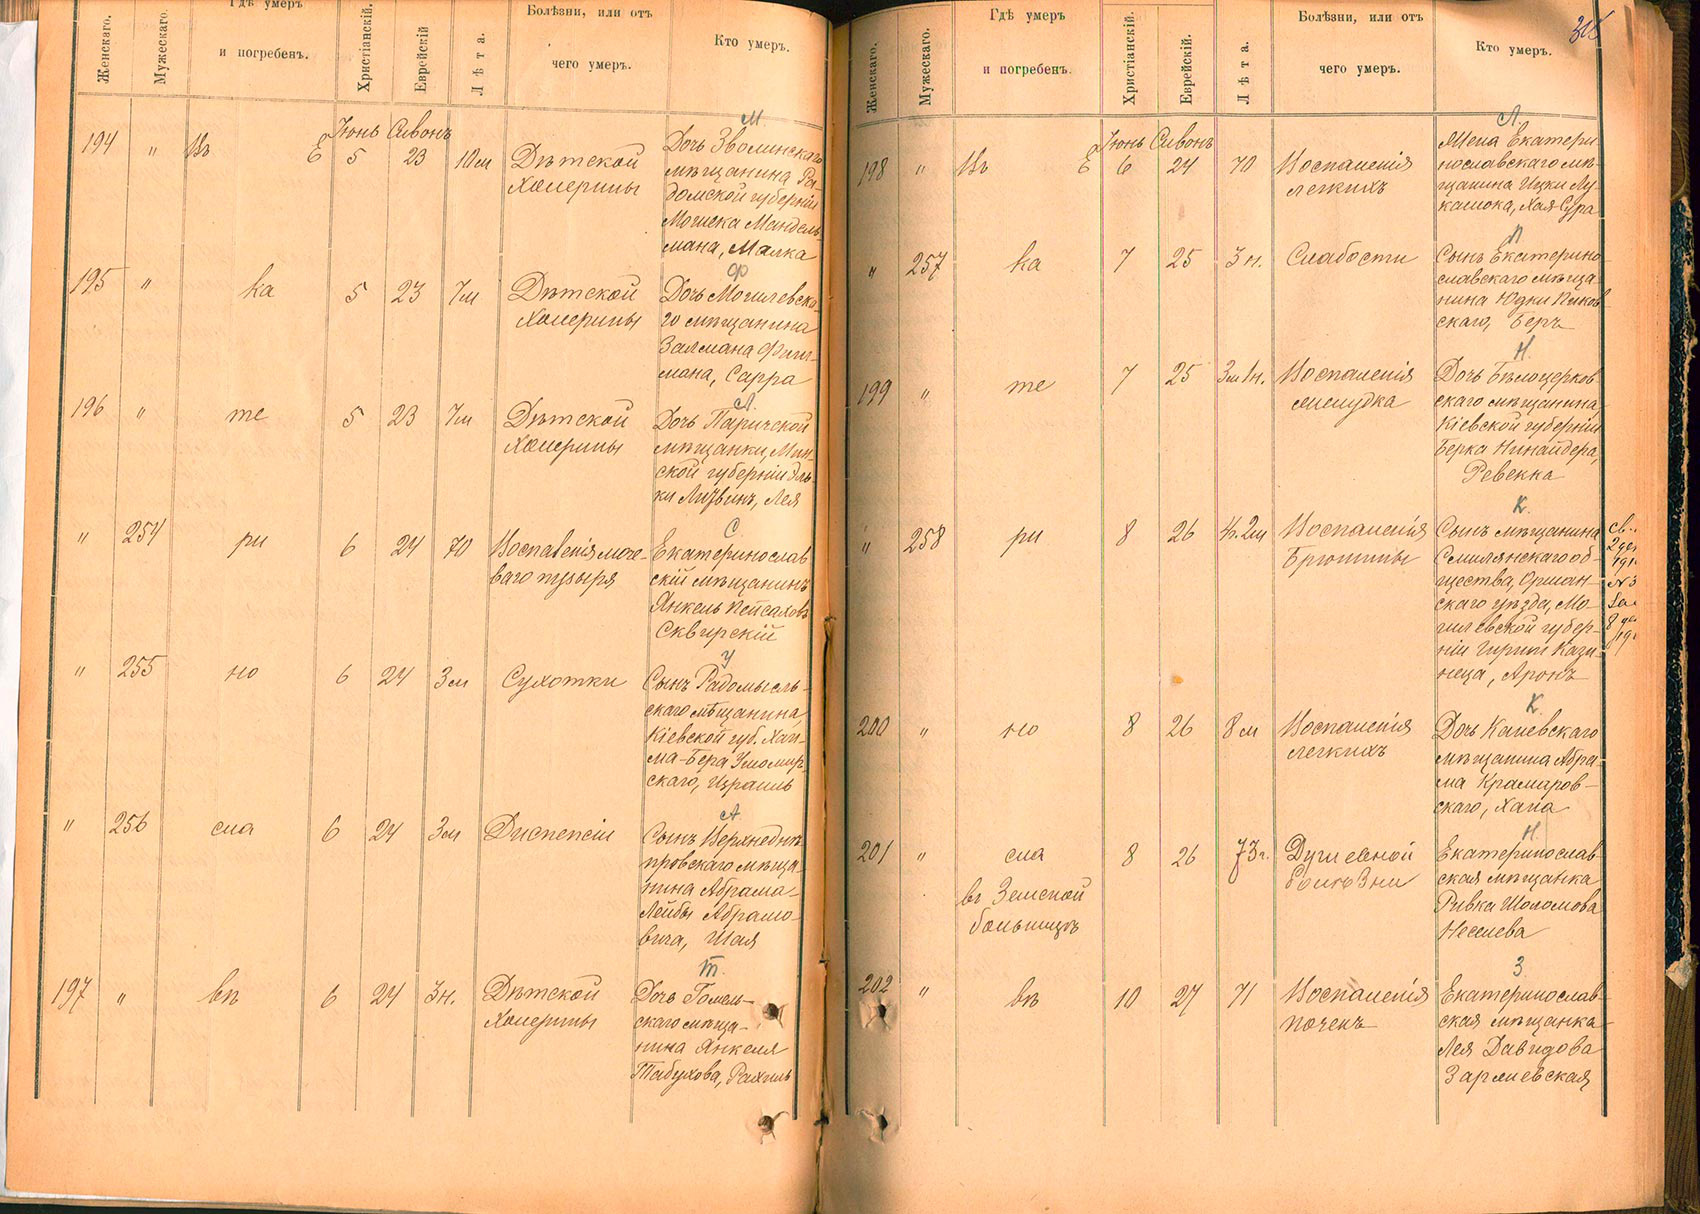 Женскаго.
Мужескаго.
Гдѣ умеръ
и погребенъ.
Христіанскій.
Еврейскій
Лѣта.
Болѣзни, или отъ
чего умеръ.
Кто умеръ.
Іюнь Сивонъ
М.
194 " Въ Е 5 23 10 м Дѣтской
Холерины
Дочь Зволинскаго
мѣщанина Ра-
домской губерніи
Мошека Мандель-
мана, Малка
Ф
195 " ка 5 23 7 м Дѣтской
Холерины
Дочь Могилевска-
го мѣщанина
Залмана Фиш-
мана, Сарра
Л.
196 " те 5 23 7 м Дѣтской
Холерины
Дочь Паричской
мѣщанки, Мин-
ской губерніи Эль-
ки Литвинъ, Лея
С.
" 254 ри 6 24 70 Воспаленія моче-
ваго пузыря
Екатеринослав
скій мѣщанинъ
Янкель Пейсаховъ
Сквирскій
У
" 255 но 6 24 3 м Сухотки
Сынъ Радомысль-
скаго мѣщанина,
Кіевской губ. Хаи-
ма-Бера
скаго, Израиль
А.
" 256 сла 6 24 3 м Диспепсіи
Сынъ Верхнеднѣ-
провскаго мѣща-
нина Абрама-
Лейбы Абрамо-
вича, Шая
Т.
197 " въ 6 24 3 н. Дѣтской
Холерины
Дочь Гомель-
скаго мѣща-
нина Янкеля
Табухова, Рахиль
Женскаго.
Мужескаго.
Гдѣ умеръ
и погребенъ.
Христіанскій.
Еврейскій.
Лѣта.
Болѣзни, или отъ
чего умеръ.
Кто умеръ.
Іюнь Сивонъ
Л.
198 " Въ Е 6 24 70 Воспаленія
легкихъ
Жена Екатери-
нославскаго мѣ-
щанина Ицки Лу-
кашока, Хая-Сура
П
" 257 ка 7 25 3 н. Слабости
Сынъ Екатерино-
славскаго мѣща-
нина Юдки
скаго, Беръ
Н.
199 " те 7 25 3 м 1 н. Воспаленія
желудка
Дочь Бѣлоцерков-
скаго мѣщанина,
Кіевской губерніи
Берка Нинайдера,
Ревекка
К.
" 258 ри 8 26 4 г. 2 м Воспаленія
Брюшины
Сынъ мѣщанина
Смилянскаго об-
щества, Оршан-
скаго уѣзда, Мо-
гилевской губер-
ніи Гирши Кази-
неца, Аронъ
К.
200 " но 8 26 8 м Воспаленія
легкихъ
Дочь Каневскаго
мѣщанина Абра-
ма Крамаров-
скаго, Хана
Н.
201 " сла 8 26 73 г. Душевной
болѣзни
въ Земской
больницѣ
Екатеринослав-
ская мѣщанка
Ривка Шоломова
Нехлева
З.
202 " въ 10 27 71 Воспаленія
почекъ
Екатеринослав-
ская мѣщанка
Лея Давидова
Зарлиевская